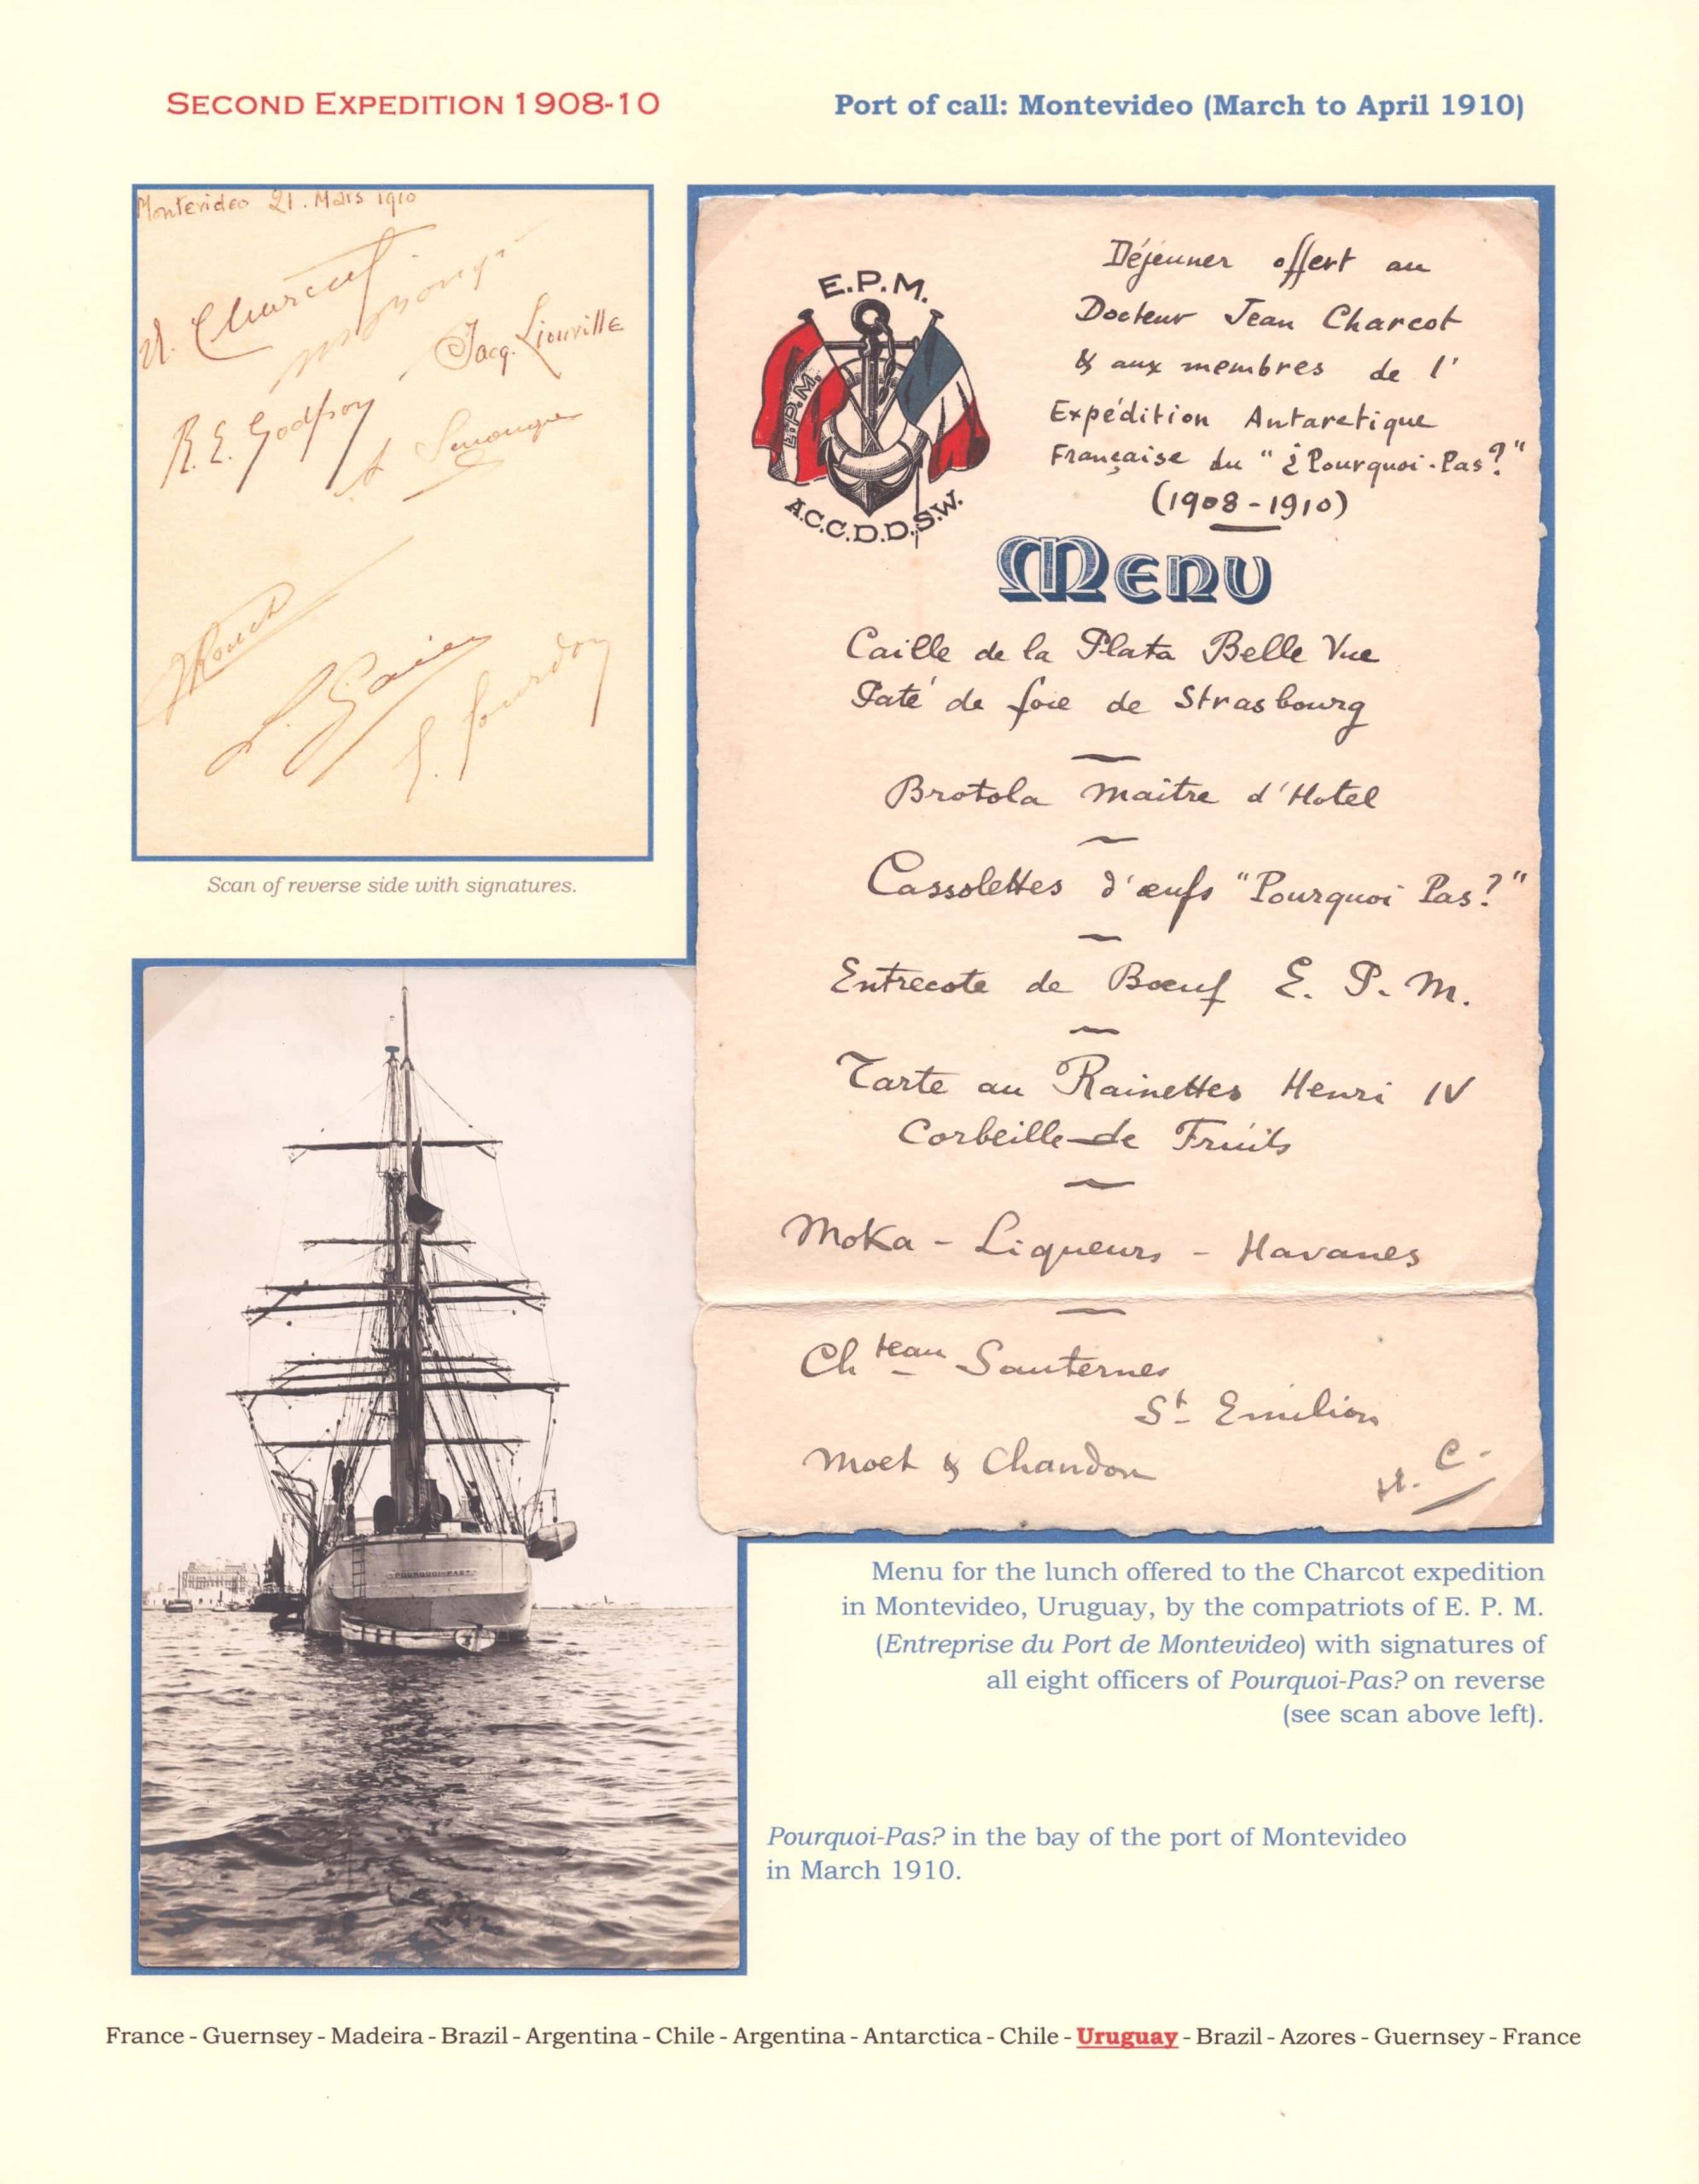 SECOND EXPEDITION 1908-10
Port of call: Montevideo (March to April 1910)
Montevideo 21. Mars 1910
Charcot
Jacq. Liouville
R.E. Godfroy
A Senouque
JRouch
L. Gain
E. Gourdon
Scan of reverse side with signatures.
E.P.M.
E.P.M.
A.C.C.D.D.S.W.
Déjeuner offert au
Docteur Jean Charcot
& aux membres de l'
Expédition Antarctique
Française du "¿Pourquoi-Pas?"
(1908-1910)
MENU
Caille de la Plata Belle Vue
Paté de foie de Strasbourg
Brotola maitre d'Hotel
Cassolettes d'œufs "Pourquoi Pas?"
Entrecote de Bœuf E. P. M.
Tarte au Rainettes Henri IV
Corbeille de Fruits
Moka - Liqueurs - Havanes
Chteau Sauternes
St Emilion
Moet & Chandon
H. C.
POURQUOI-PAS?
Menu for the lunch offered to the Charcot expedition
in Montevideo, Uruguay, by the compatriots of E. P. M.
(Entreprise du Port de Montevideo) with signatures of
all eight officers of Pourquoi-Pas? on reverse
(see scan above left).
Pourquoi-Pas? in the bay of the port of Montevideo
in March 1910.
France - Guernsey - Madeira - Brazil - Argentina - Chile - Argentina - Antarctica - Chile - Uruguay - Brazil - Azores - Guernsey - France